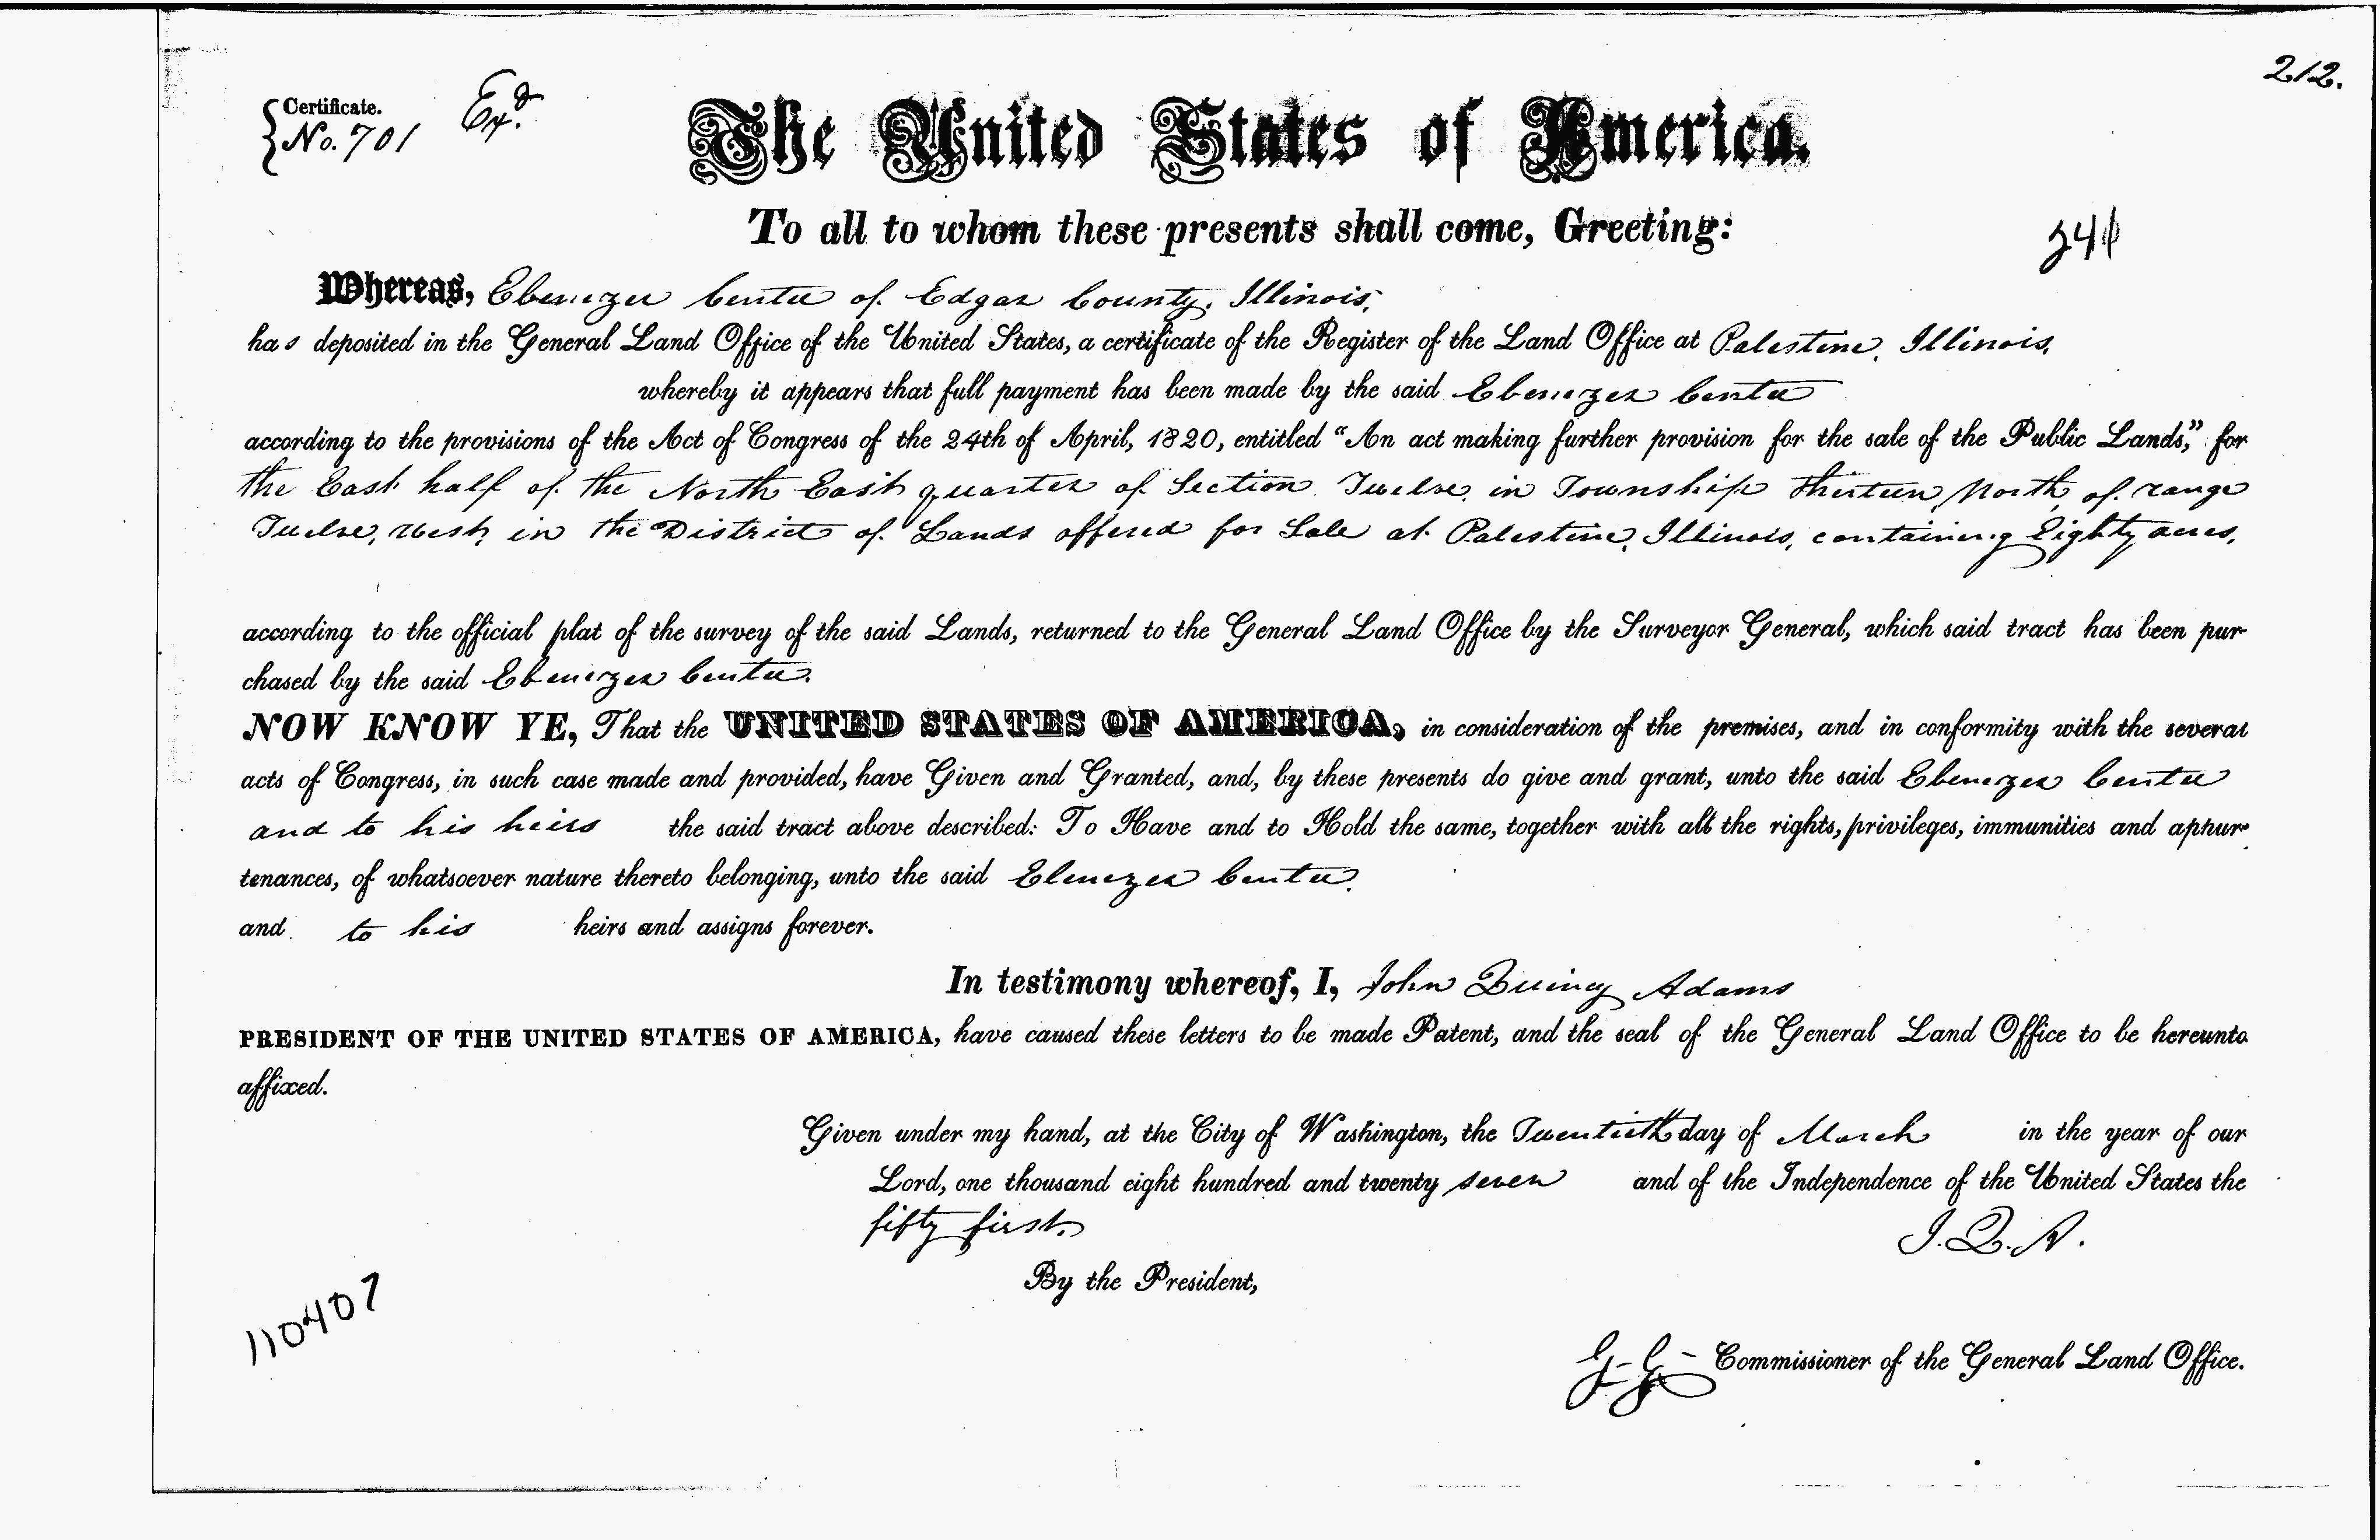 212.
Certificate.
No. 701
Exd.
The United States of America.
To all to whom these presents shall come, Greeting:
Whereas, Ebenezer Center of Edgar County, Illinois,
has deposited in the General Land Office of the United States, a certificate of the Register of the Land Office at Palestine, Illinois,
whereby it appears that full payment has been made by the said Ebenezer Center
according to the provisions of the Act of Congress of the 24th of April, 1820, entitled “An act making further provision for the sale of the Public Lands,” for
the East half of the North East quarter of Section Twelve, in Township thirteen, North, of range
Twelve, West, in the District of Lands offered for Sale at Palestine, Illinois, containing Eighty acres,
according to the official plat of the survey of the said Lands, returned to the General Land Office by the Surveyor General, which said tract has been pur-
chased by the said Ebenezer Center.
NOW KNOW YE, That the UNITED STATES OF AMERICA, in consideration of the premises, and in conformity with the several
acts of Congress, in such case made and provided, have Given and Granted, and, by these presents do give and grant, unto the said Ebenezer Center
and to his heirs the said tract above described: To Have and to Hold the same, together with all the rights, privileges, immunities and appur-
tenances, of whatsoever nature thereto belonging, unto the said Ebenezer Center,
and to his heirs and assigns forever.
In testimony whereof, I, John Quincy Adams
PRESIDENT OF THE UNITED STATES OF AMERICA, have caused these letters to be made Patent, and the seal of the General Land Office to be hereunto
affixed.
Given under my hand, at the City of Washington, the Twentieth day of March in the year of our
Lord, one thousand eight hundred and twenty seven and of the Independence of the United States the
fifty first.
J. Q. A.
By the President,
110407
G. G. Commissioner of the General Land Office.